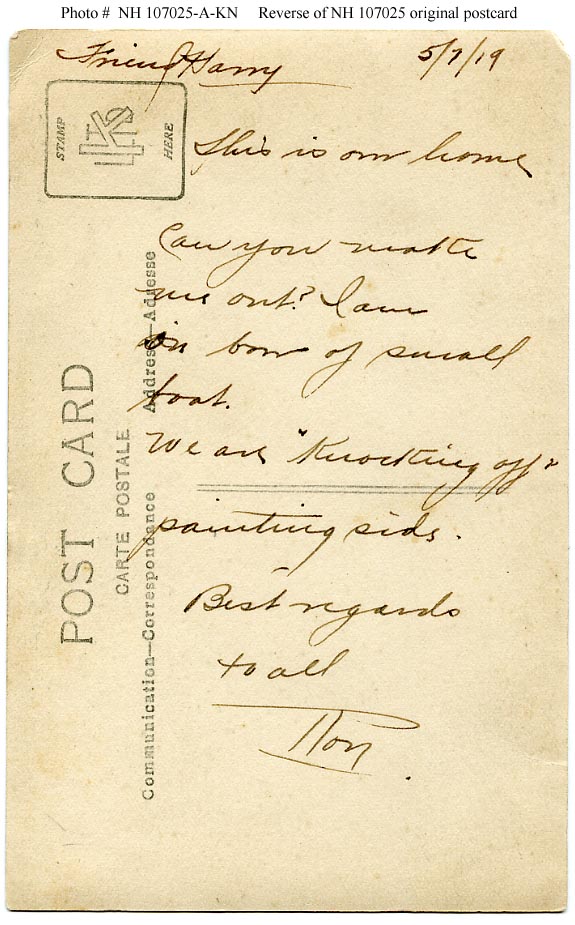 Photo # NH 107025-A-KN Reverse of NH 107025 original postcard
Friend Harry 5/7/19
STAMP HERE
This is our home
Can you make
me out? I am
in bow of small
boat.
We are "Knocking off"
painting side.
Best regards
to all
POST CARD
CARTE POSTALE
Communication—Correspondance Address—Adresse